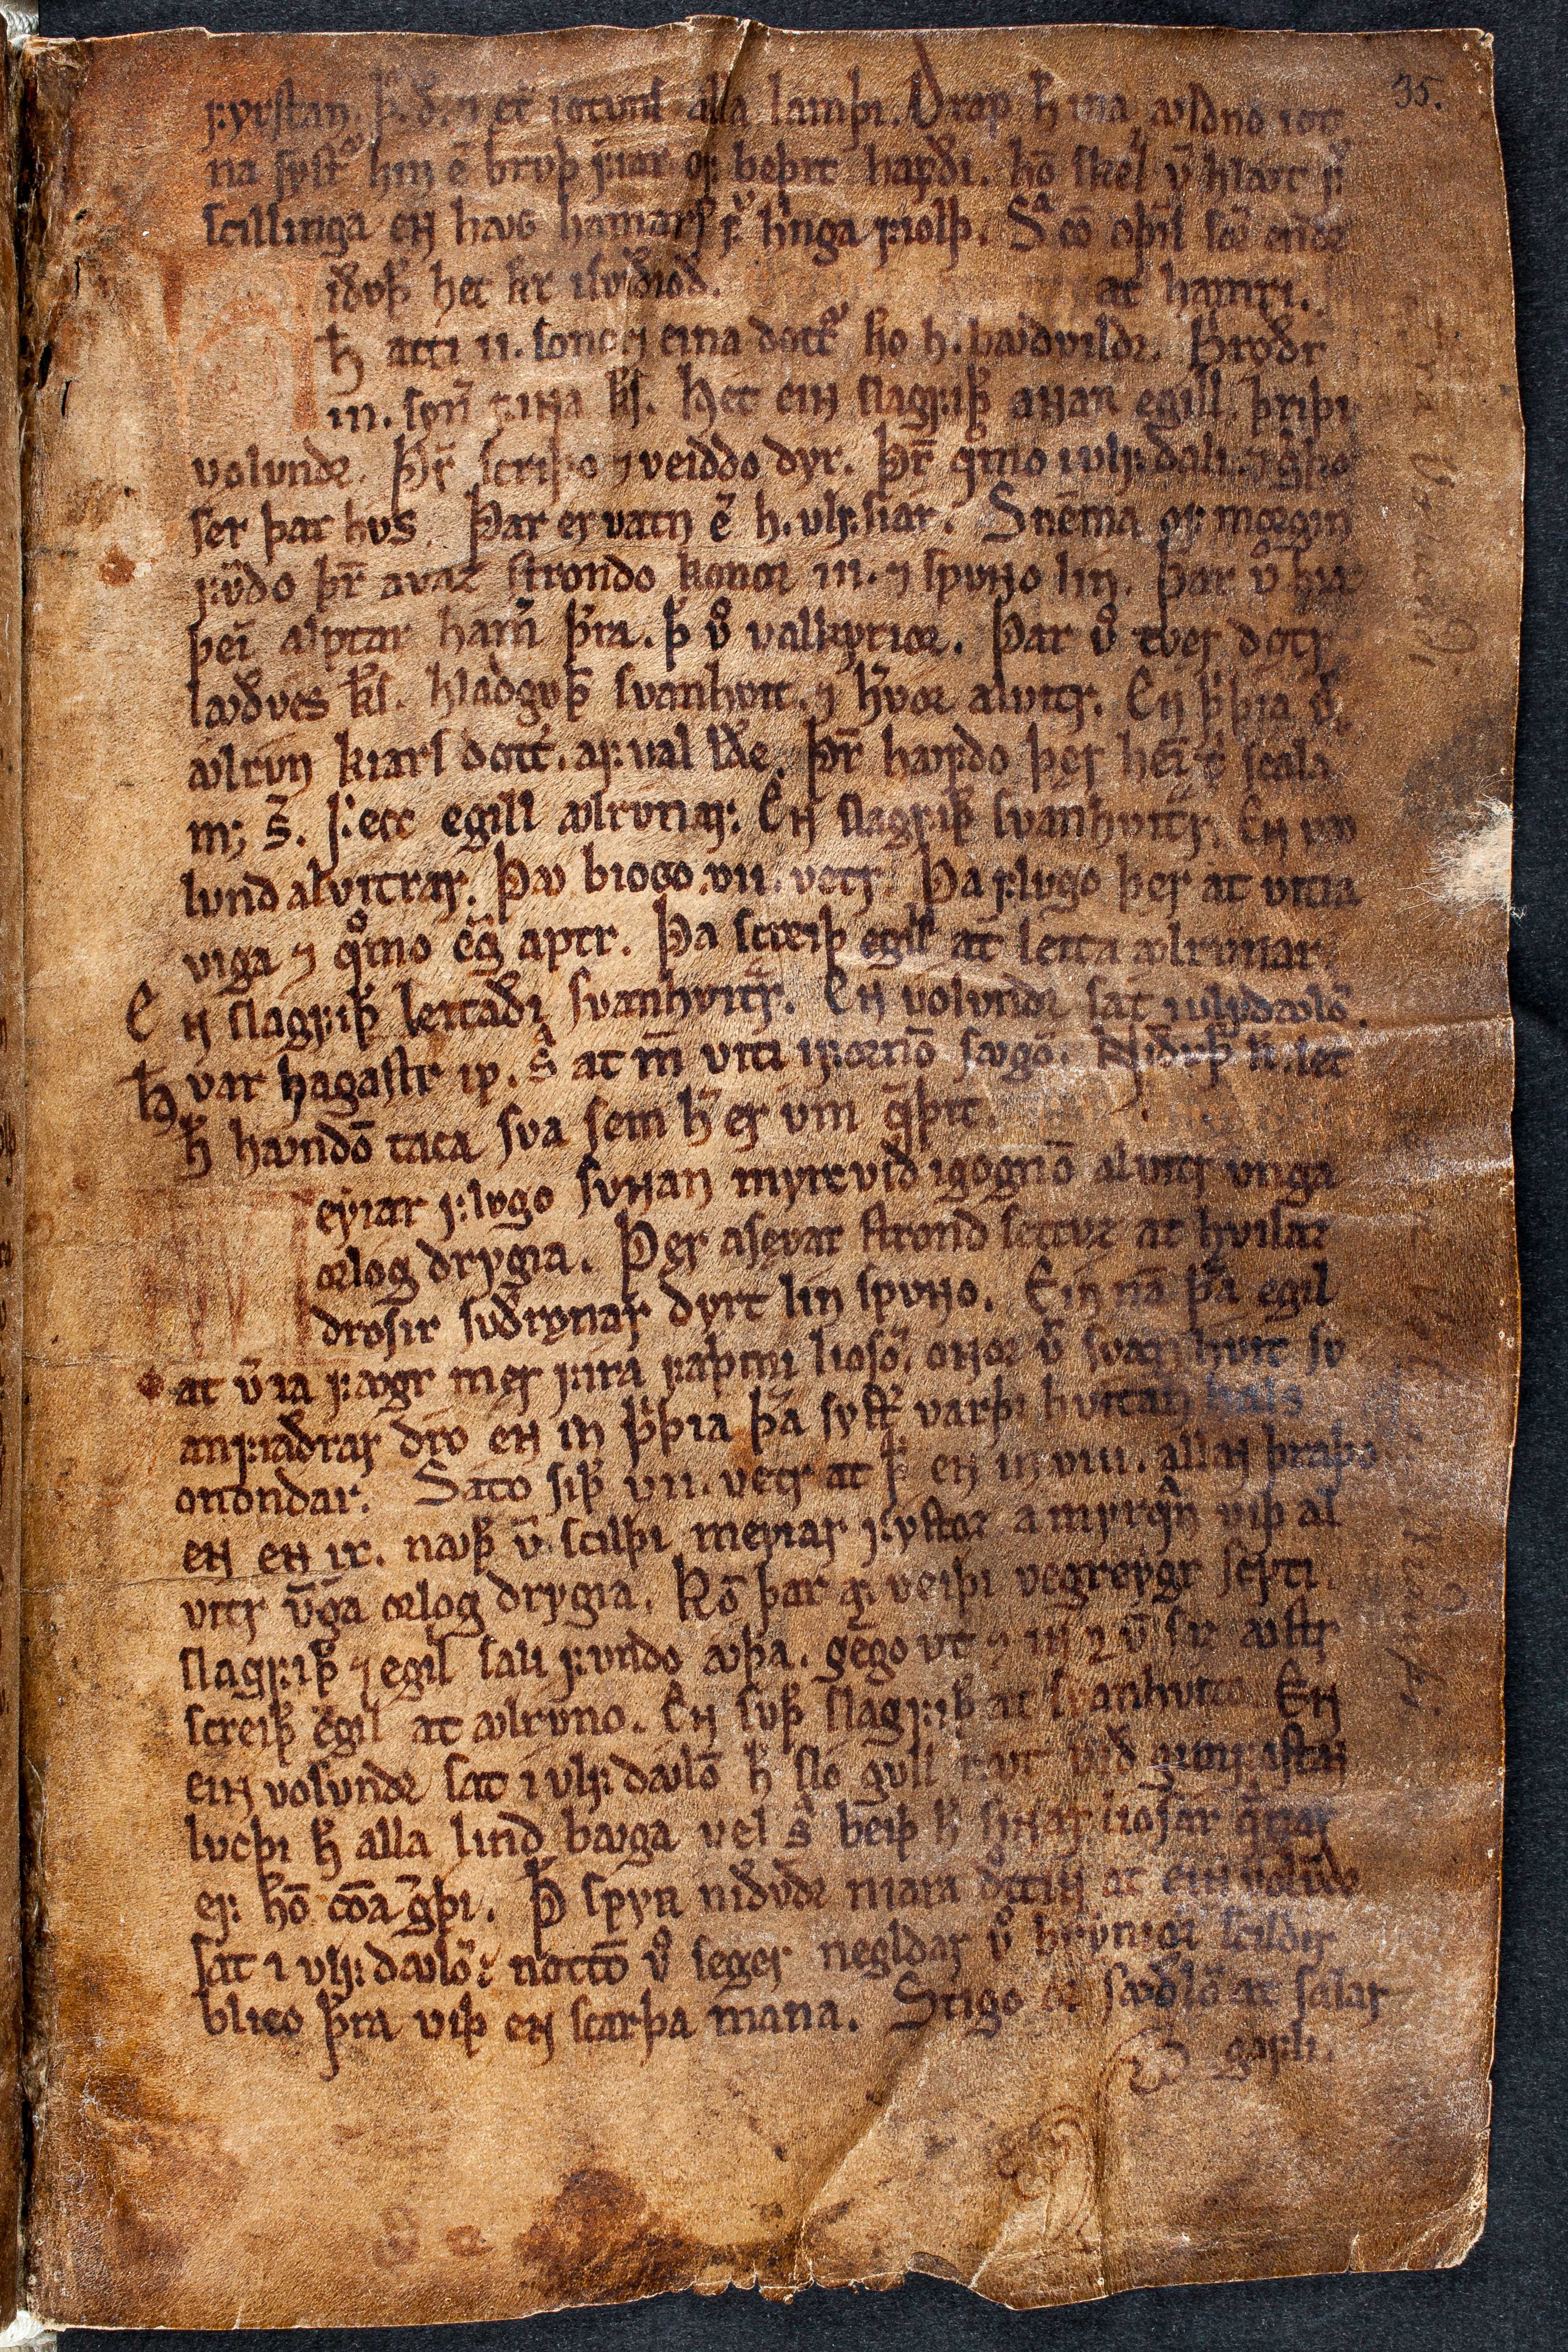 35.
fyrstan þ. d. ⁊ ęt iotvns alla lamþi. Drap h̄ ina ꜹldno iot
na systꝛ hin ē brvþ fiar of beþit hafði. hō skell v̄ hlꜹt f͛
scillinga eɴ hꜹg hamars f͛ hringa fiolþ. Sa cō oþins soɴ endꝛ
iðvþ het kr isviðioð. at hamri.
h̄ atti ii. sono ⁊ eina dottꝛ ho h. bꜹdvildꝛ. Brǫðr
iii. syn̄ fiɴa ks. Het eiɴ slagfiþ aɴaʀ egill. þriþi
volvndꝛ. Þr̄ scriþo ⁊ veiddo dyr. Þr̄ qͦmo i vlfdali. ⁊ g̊þo
ser þar hvs. Þar er vatn ē h. vlfsiar. Snēma of morgin
fvndo þr̄ a vaz strondo konoꝛ iii. ⁊ spvɴo lin. Þar v̊ hia
þeī alptar ham̄ þra. þ̄ v̊ valkyrior. Þar v̊ tvęr dǫtr
lꜹðves ks. hlaðgvþ svanhvit. ⁊ h̄vor alvitr. Eɴ þ͛þia v̄.
ꜹlrvn kiars dott. af vallde. Þr̄ hꜹfdo þęr heī t͛ scala
m; s̄. Fecc egill ꜹlrvnar. Eɴ slagfiþ svanhvitr. Eɴ vo
lund alvitrar. Þꜹ biogo .vii. vetr. Þa flvgo þęr at vitia
viga ⁊ qͦmo eḡ aptr. Þa screiþ egill at leita ꜹlrvnar
Eɴ slagfiþ leitaði svanhvitr. Eɴ volvndꝛ sat i vlfdꜹlō.
h̄ var hagastr m̄. sͣ at m̄ viti ifornō sꜹgō. Niðvþ kr. let
h̄ hꜹndō taca sva sem h̄ er vm qͣþit.
eyiar flvgo svɴan myrcvid igognō alvitr vnga
ꜹrlog drygia. Þęr a sęvar strond settvz at hvilaz
drosir svdrǫnar dyrt lin spvɴo. Ein nā þra egil
at v̄ia fꜹgr męr fira faþmi liosō. oɴoꝛ v̄ svanhvit sv
anfiaðrar dro eɴ in þ͛þia þra systꝛ varþi hvitan hals
onondar. Sato siþ vii. vetr at þ̄ eɴ iɴ viii. allaɴ þraþo
eɴ eɴ ix. nꜹþꝛ v̄ scilþi meyiar fystoz a myrqͣn viþ al
vitr v̄ga ꜹrlog drygia. Kō þar af veiþi vegreygr scyti.
slagfiþ ⁊ egil sali fvndo ꜹþa. gēgo vt ⁊ iɴ ⁊ v̄ saz ꜹstr
screiþ egil at ꜹlrvno. Eɴ svþꝛ slagfiþ at svanhvito. Eɴ
eiɴ volvndꝛ sat i vlfdꜹlō h̄ slo gvll rꜹt við gimfastaɴ
lvcþi h̄ alla lind bꜹga vel sͣ beiþ h̄ siɴar liosar qͣnar
ef hō cōa gͦþi. Þ̄ spyʀ niðvðꝛ niara dͦttiɴ at eiɴ volvndꝛ
sat i vlfdꜹlō. nottō v̊ seger negldar v̊ brynioꝛ scildir
blico þra viþ eɴ scarþa mana. Stigo oꝛ sꜹðlō at salar
gafli.